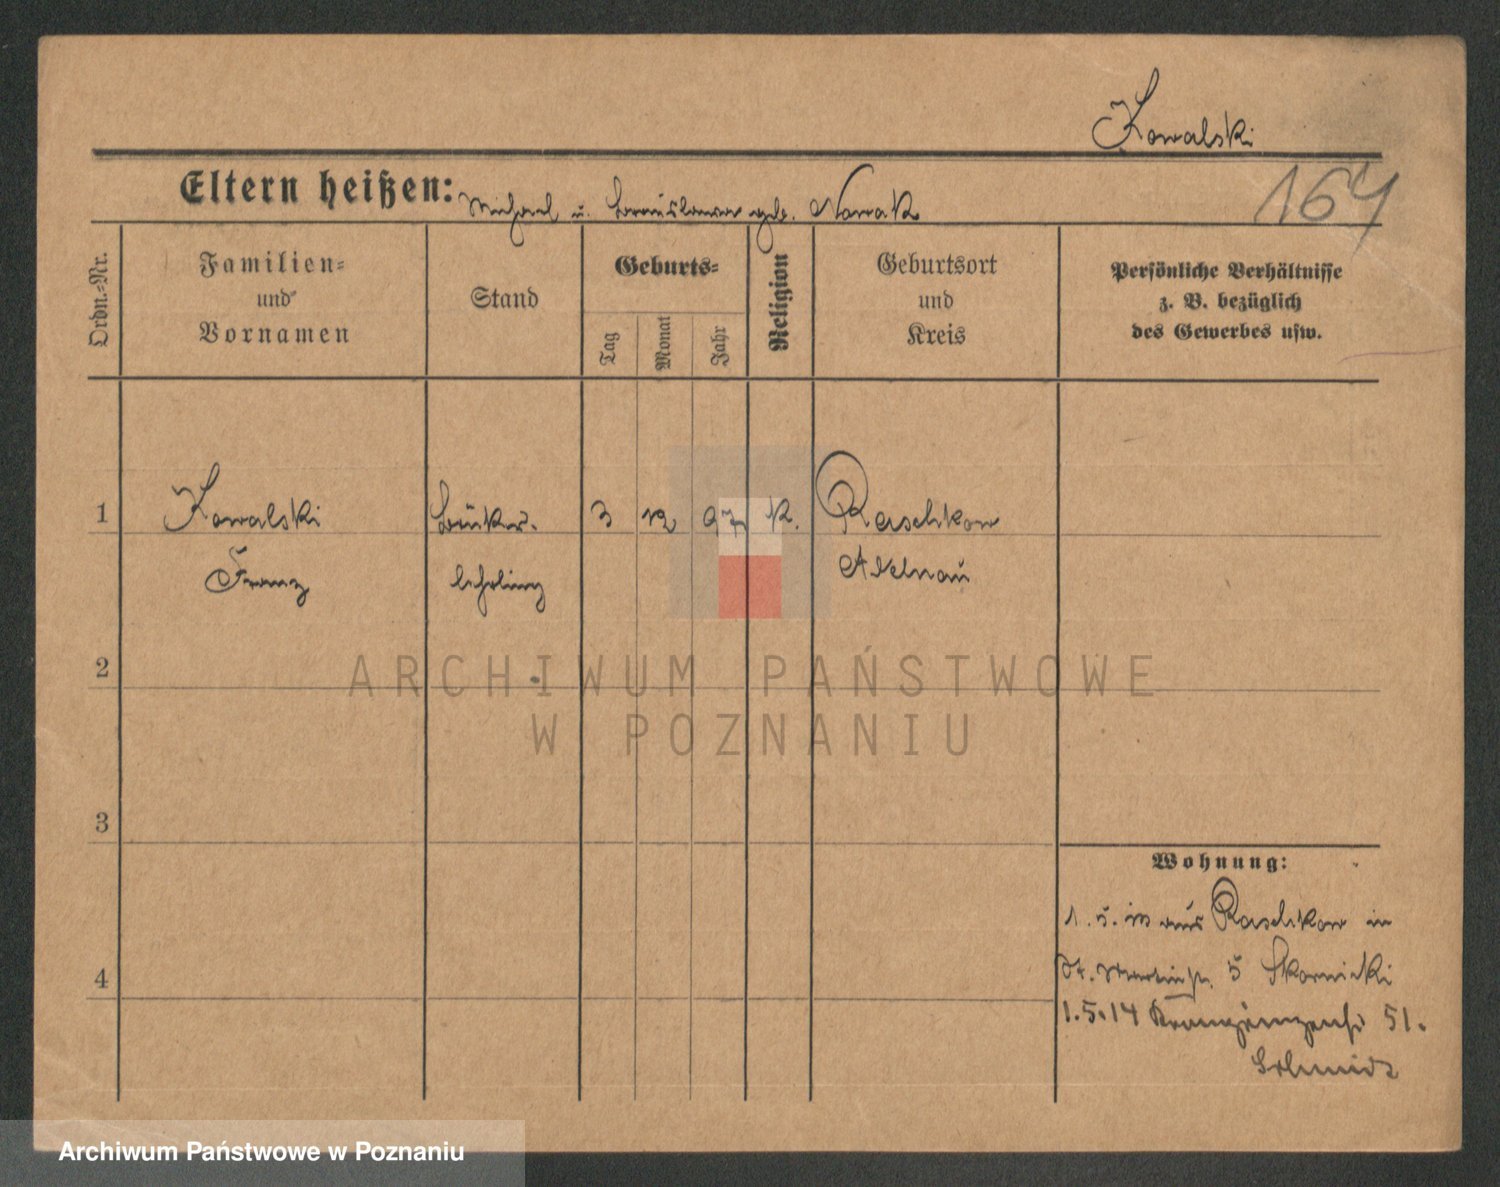 Kowalski
Eltern heißen: Michael u. Bronislawa geb. Nowak
164
Ordn.-Nr.
Familien-
und
Vornamen
Stand
Geburts-
Tag
Monat
Jahr
Religion
Geburtsort
und
Kreis
Persönliche Verhältnisse
z. B. bezüglich
des Gewerbes usw.
1 Kowalski 3 12 97 K. Raschkow
Franz lehrling Adelnau
2
ARCHIWUM PAŃSTWOWE
W POZNANIU
3
Wohnung:
aus Raschkow in
4
St. Martinstr. 5 Skornicki
1.5.14 51.
Schmidt
Archiwum Państwowe w Poznaniu